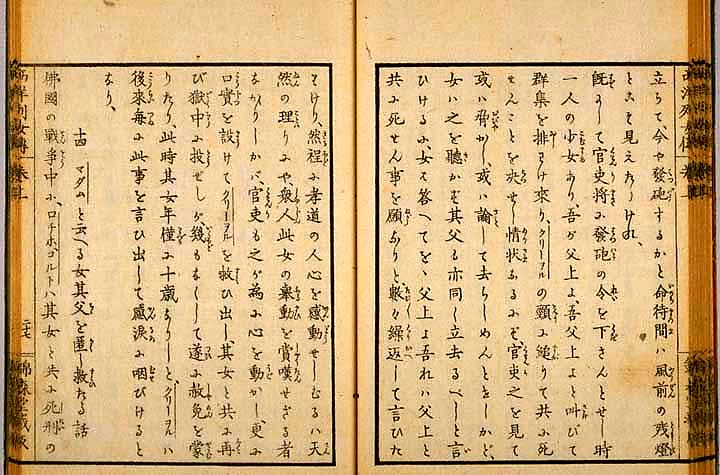 立ちて今や發砲するかと命待間ハ風前の残燈
とこそ見えたりけれ、
既にして官吏將に發砲の令を下さんとせし時
一人の少女あり、吾が父上よ、吾父上よと叫びて
群集を排け來り、クリーヲルの頸に縋りて共に死
せんことを決せし情状なるにぞ官吏之を見て
或ハ脅かし或ハ諭して去らしめんとをしかど、
女ハ之を聽かず其父も亦同し立去るべしと言
ひけるに、女答へて、父上よ吾れハ父上と
共に死せん事を願ふなりと、數々繰返して言ひた
とけり、然程に孝道の人心を感動せしむるハ天
然の理りにや、衆人此女の舉動を賞嘆せざる者
なかりしかバ、官吏も之が為に心を動かし、更に
口實を設けてクリーヲルを救ひ出し其女と共に再
び獄中に投せしが幾もなくして遂に赦免を蒙
りたり、此時其女年僅に十歳なりしとぞクリーヲルハ
後來毎に此事を言ひ出して感涙に咽びけると
なり、
十四 マダムと云へる女其父を匿し救たる話
佛國の戰爭中に、ロチホゴルトハ其女と共に死刑の
西洋列女傳 巻上 二十七 錦森堂藏版